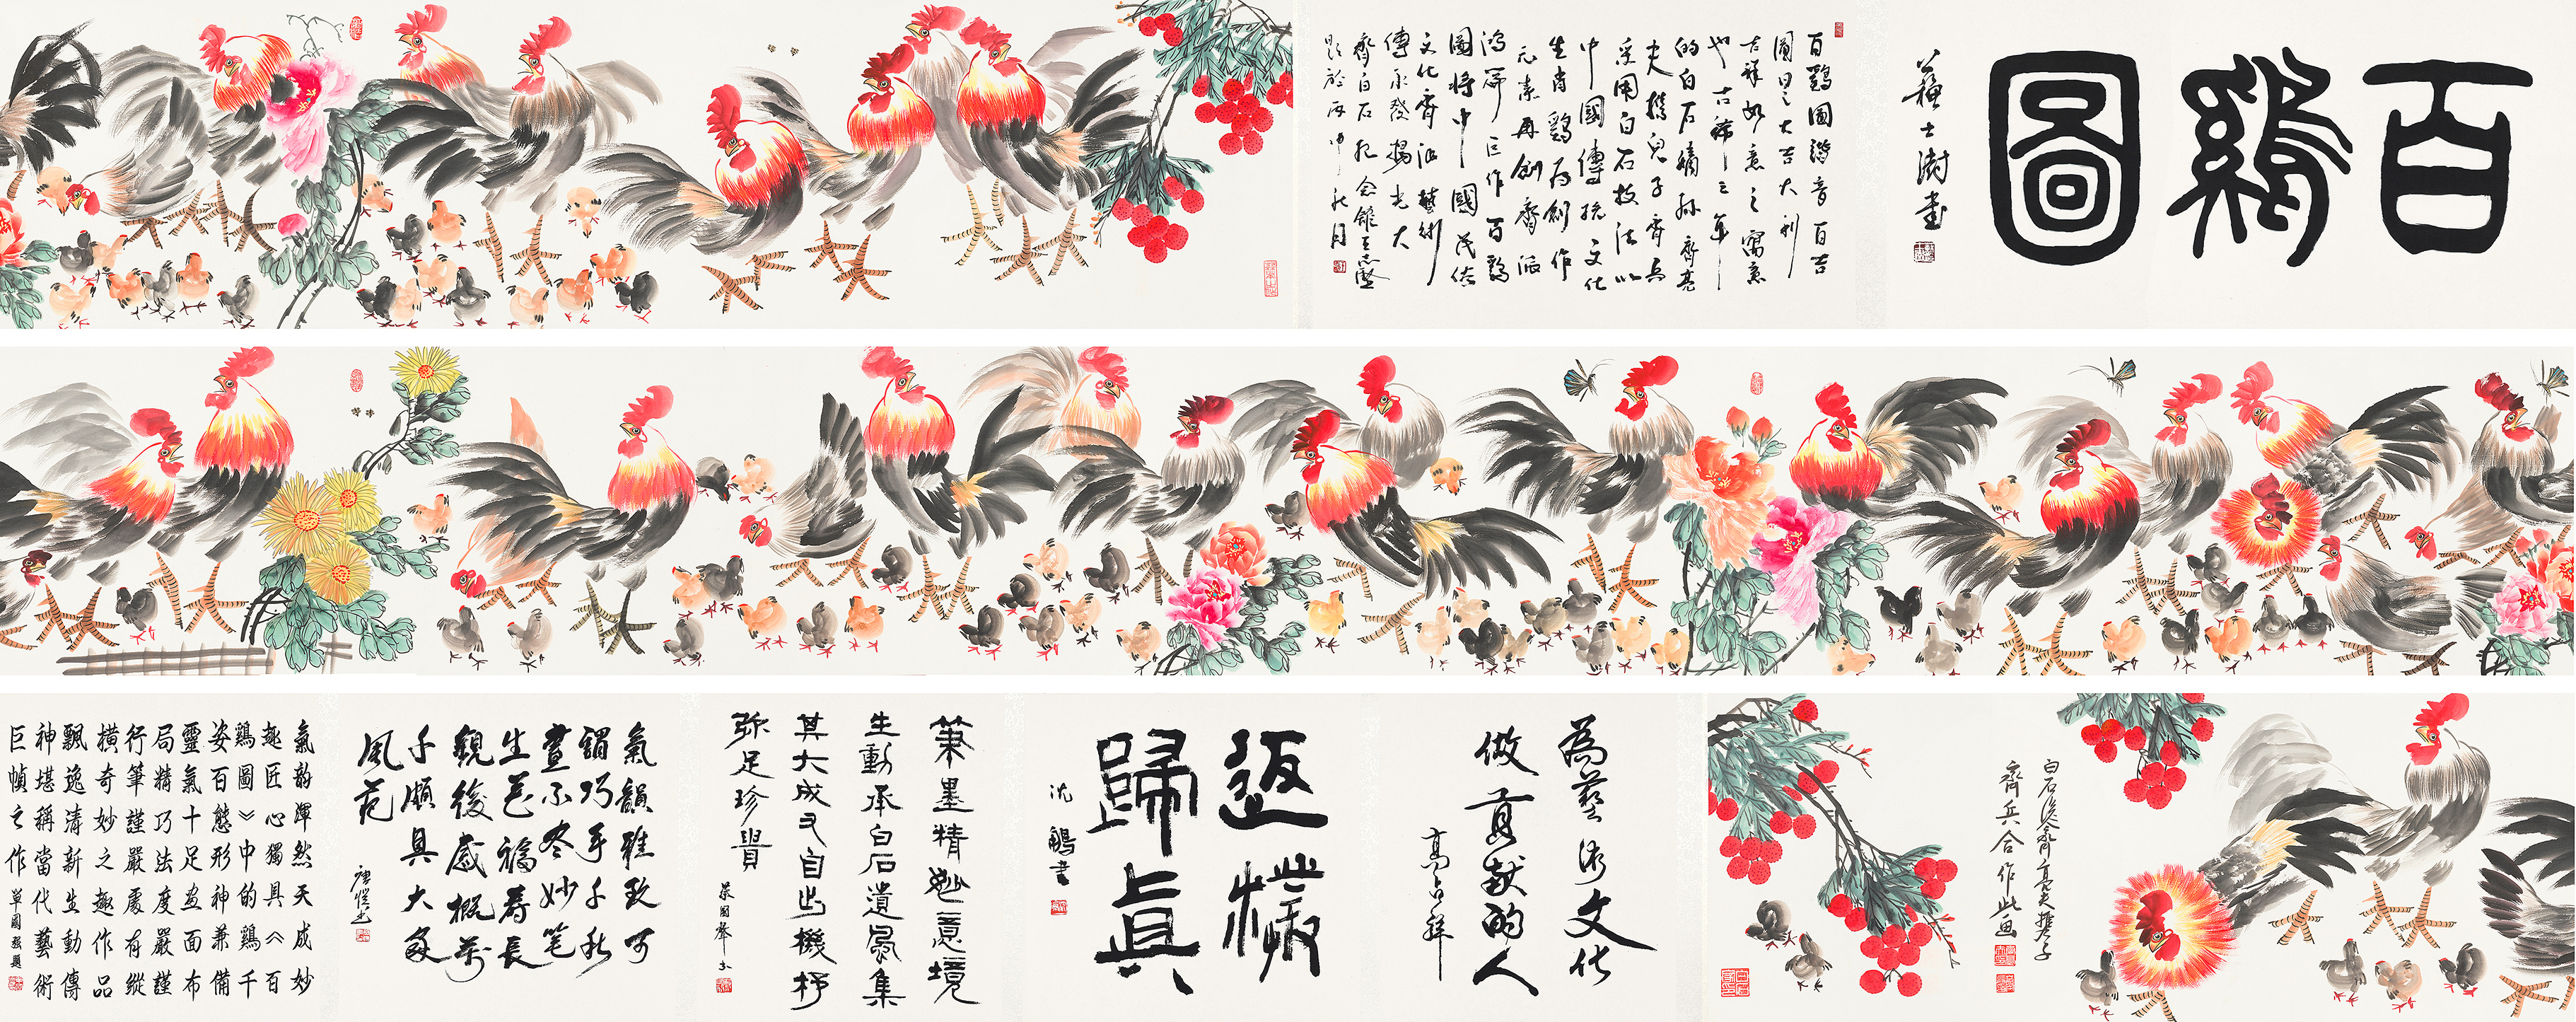 百鷄圖
蘇士澍書
百鷄圖諧音百吉
圖日之大吉大利
吉祥如意之寓意
也古稀之年
的白石嫡孫齊亮
夫携兒子齊兵
采用白石技法以
中國傳統文化
生肖鷄爲創作
元素再創齊派
鴻篇巨作百鷄
圖將中國民俗
文化齊派藝術
傳承發揚光大
齊白石紀念館王志堅
題於丙申秋月
白石後裔齊亮夫携子
齊兵合作此画
為藝術文化
做貢献的人
高占祥
返樸
歸眞
沈鵬書
筆墨精妙意境
生動承白石遺風集
其大成又自出機杼
弥足珍貴
氣韻雅致可
謂巧手千秋
畫不盡妙笔
生花福壽長
観後感概萬
千頗具大家
風范
氣韵渾然天成妙
趣匠心獨具《百
鷄圖》中的鷄千
姿百態形神兼備
靈氣十足画面布
局精巧法度嚴謹
行筆謹嚴處有縱
橫奇妙之趣作品
飄逸清新生動傳
神堪稱當代藝術
巨幀之作
單國强題